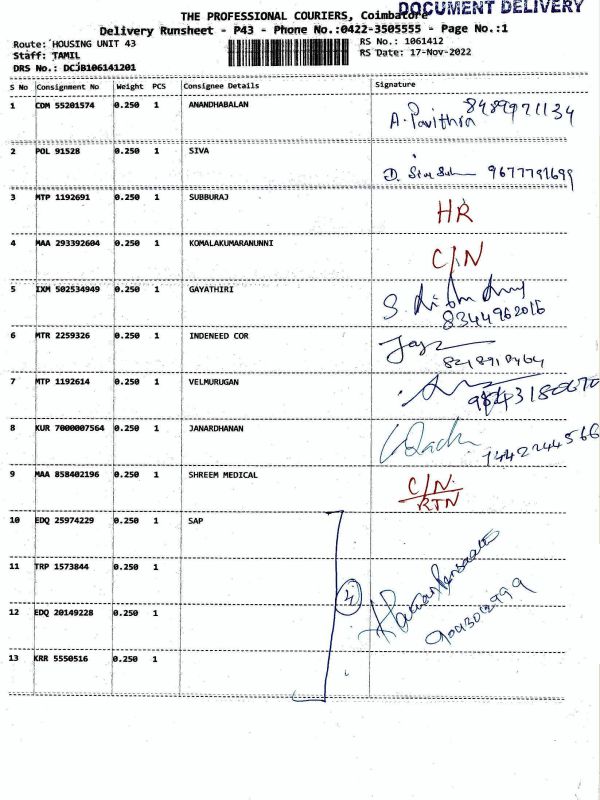 DOCUMENT DELIVERY
THE PROFESSIONAL COURIERS, Coimbatore
Delivery Runsheet - P43 - Phone No.:0422-3505555 - Page No.:1
Route: HOUSING UNIT 43 RS No.: 1061412
Staff: TAMIL RS Date: 17-Nov-2022
DRS No.: DCJB106141201
S No Consignment No Weight PCS Consignee Details Signature
1 CDM 55201574 0.250 1 ANANDHABALAN
A. Pavithra 8489971134
2 POL 91528 0.250 1 SIVA
9677791699
3 MTP 1192691 0.250 1 SUBBURAJ HR
4 MAA 293392604 0.250 1 KOMALAKUMARANUNNI C/N
5 IXM 502534949 0.250 1 GAYATHIRI
8344962016
6 MTR 2259326 0.250 1 INDENEED COR
7 MTP 1192614 0.250 1 VELMURUGAN
8 KUR 7000007564 0.250 1 JANARDHANAN
7442244566
9 MAA 858402196 0.250 1 SHREEM MEDICAL C/N
RTN
10 EDQ 25974229 0.250 1 SAP
11 TRP 1573844 0.250 1
12 EDQ 20149228 0.250 1
4
13 KRR 5550516 0.250 1